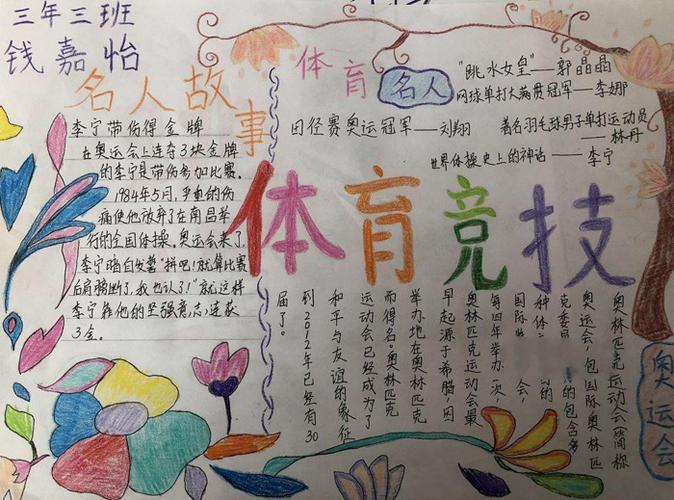 三年三班
钱嘉怡
名人故事
李宁带伤得金牌
在奥运会上连夺3块金牌
的李宁是带伤参加比赛。
1984年5月,严重的伤
病使他放弃了在南昌举
行的全国体操。奥运会来了,
李宁暗自发誓"拼吧!就算比赛
后肩膀断了,我也认了!"就这样
李宁靠他的坚强意志,连获
3金。
体育名人
"跳水女皇"——郭晶晶
网球单打大满贯冠军——李娜
田径赛奥运冠军——刘翔
著名羽毛球男子单打运动员
——林丹
世界体操史上的神话——李宁
体育竞技
奥林匹克运动会(简称
奥运会,包国际奥林匹
克委员 的包含多
种体 的
国际 会,
每四年举办一次,
奥林匹克运动会最
早起源于希腊,因
举办地在奥林匹克
而得名。奥林匹克
运动会已经成为了
和平与友谊的象征
到2012年已经有30
届了。
奥运会